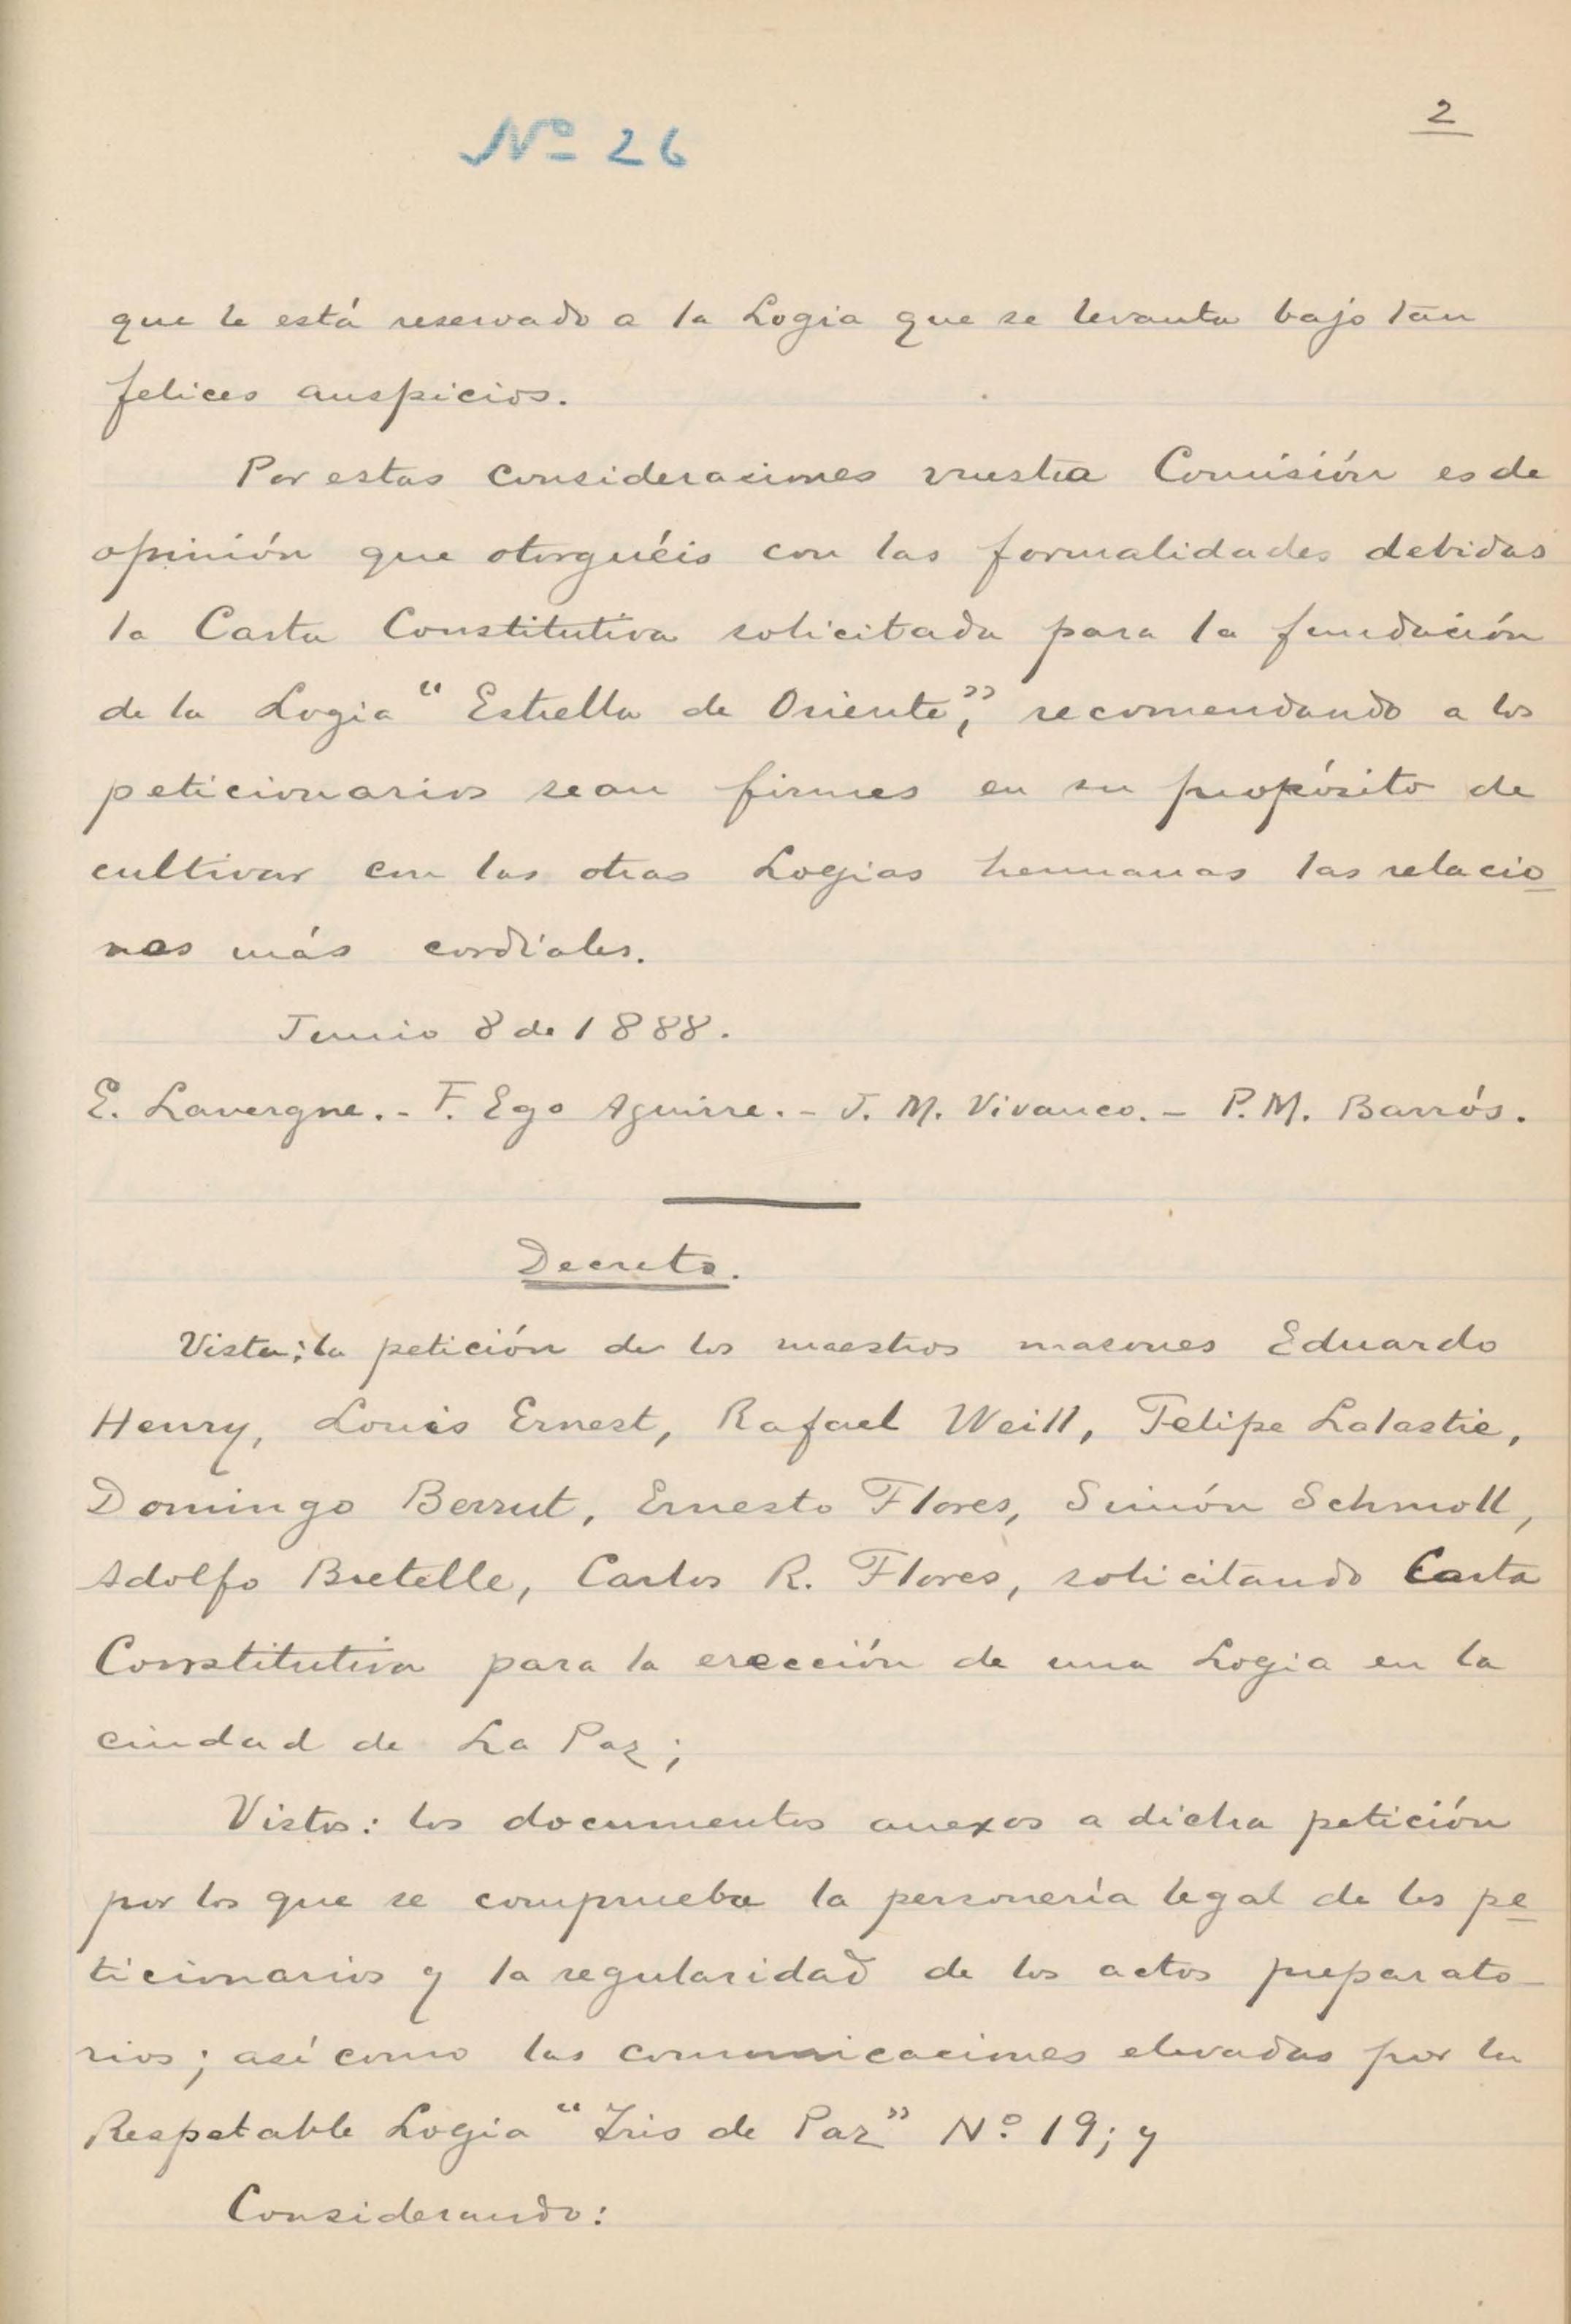 2
Nº 26
que le está reservado a la Logia que se levanta bajo tan
felices auspicios.
Por estas consideraciones vuestra Comisión es de
opinión que otorguéis con las formalidades debidas
la Carta Constitutiva solicitada para la fundación
de la Logia “Estrella de Oriente”, recomendando a los
peticionarios sean firmes en su propósito de
cultivar con las otras Logias hermanas las relacio-
nes más cordiales.
Junio 8 de 1888.
E. Lavergne. - F. Ego Aguirre. - J. M. Vivanco. - P. M. Barrós.
Decreto.
Vista; la petición de los maestros masones Eduardo
Henry, Louis Ernest, Rafael Weill, Felipe Lalastie,
Domingo Berrut, Ernesto Flores, Simón Schmoll,
Adolfo Bretelle, Carlos R. Flores, solicitando Carta
Constitutiva para la erección de una Logia en la
ciudad de La Paz;
Vistos: los documentos anexos a dicha petición
por los que se comprueba la personería legal de los pe-
ticionarios y la regularidad de los actos preparato-
rios; así como las comunicaciones elevadas por la
Respetable Logia “Iris de Paz” Nº 19; y
Considerando: